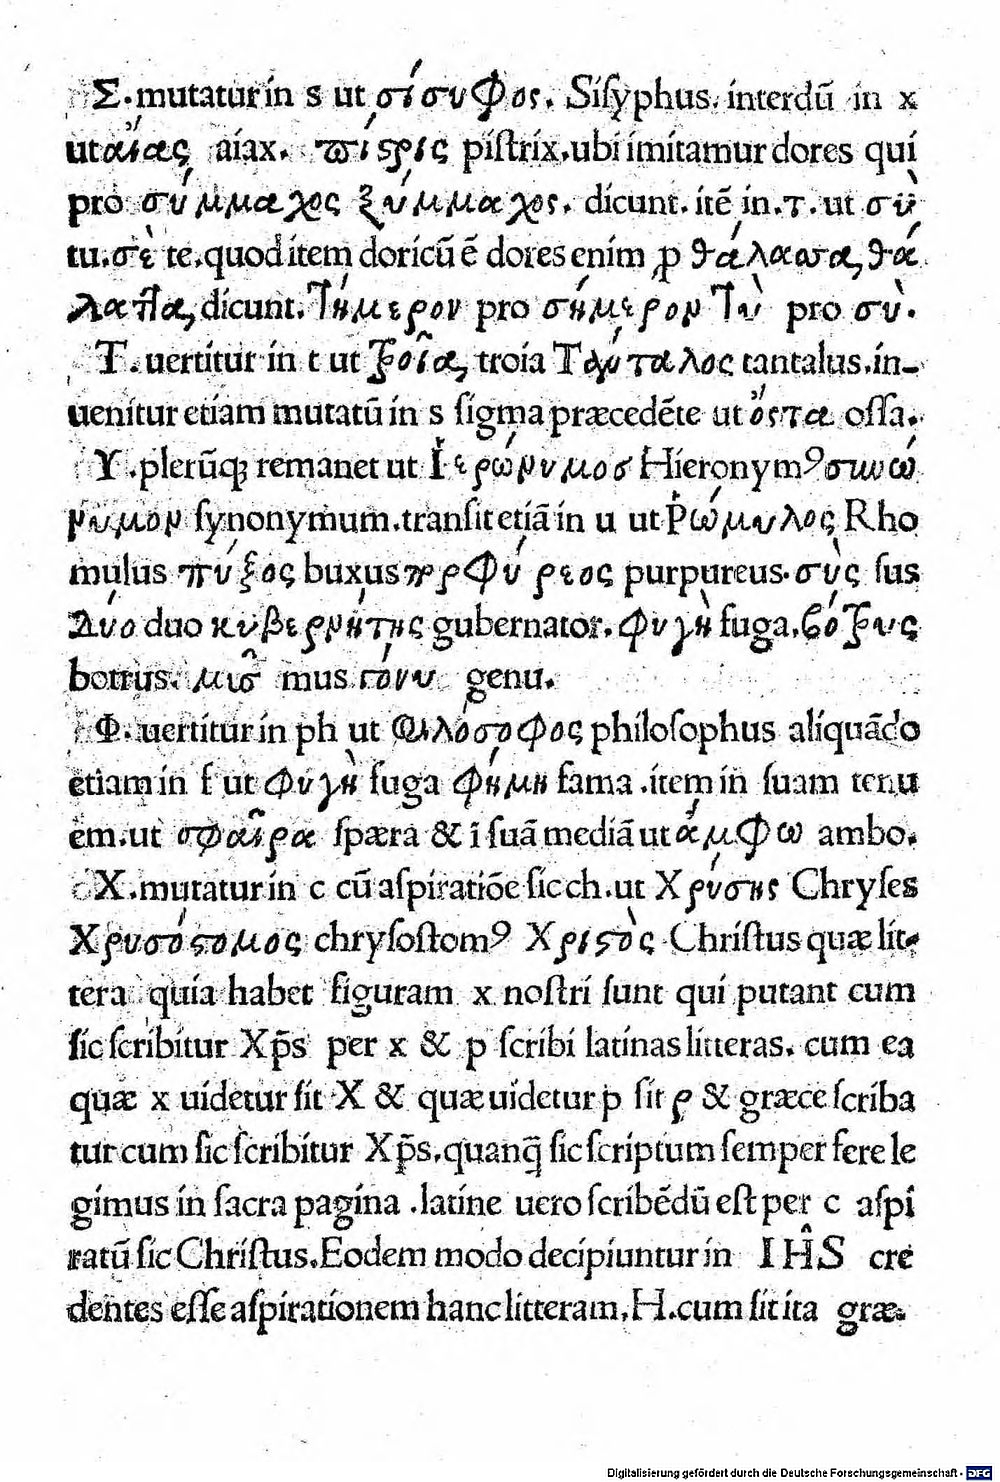 Σ. mutatur in s ut σίσυφος. Siſyphus. interdū in x
ut αἴας aiax. πίϛρις piſtrix. ubi imitamur dores qui
pro σύμμαχος ξύμμαχος. dicunt. itē in .τ. ut σὺ
tu. σὲ te. quod item doricū ē dores enim ꝓ θάλασσα, θά
λαττα, dicunt. Τήμερον pro σήμερον Τὺ pro σὺ.
Τ. uertitur in t ut Τροῖα, troia Τάνταλος tantalus. in-
uenitur etiam mutatū in s ſigma præcedēte ut ὄστα oſſa.
Υ. plerūqꝫ remanet ut Ἱερώνυμοσ Hieronymꝰ συνώ
νυμον ſynonymum. tranſit etiā in u ut Ῥώμυλος Rho
mulus πύξος buxus πρφύρεος purpureus. σὺς ſus
Δύο duo κυβερνήτης gubernator. Φυγὴ fuga. βότρυς
botrus. μῦσ mus γόνυ genu.
Φ. uertitur in ph ut Φιλόσοφος philoſophus aliquādo
etiam in f ut Φυγὴ fuga Φήμη fama . item in ſuam tenu
em. ut σφαῖρα ſpæra & ī ſuā mediā ut ἄμφω ambo.
Χ. mutatur in c cū aſpiratiōe ſic ch. ut Χρύσης Chryſes
Χρυσόϛομος chryſoſtomꝰ Χριϛὸς Chriſtus quæ lit-
tera quia habet figuram x noſtri ſunt qui putant cum
ſic ſcribitur Xp̄s per x & p ſcribi latinas litteras. cum ea
quæ x uidetur ſit Χ & quæ uidetur p ſit ρ & græce ſcriba
tur cum ſic ſcribitur Xp̄s. quanq̄ ſic ſcriptum ſemper fere le
gimus in ſacra pagina . latine uero ſcribēdū eſt per c aſpi
ratū ſic Chriſtus. Eodem modo decipiuntur in IĤS cre
dentes eſſe aſpirationem hanc litteram. H. cum ſit ita græ.
Digitalisierung gefördert durch die Deutsche Forschungsgemeinschaft - DFG